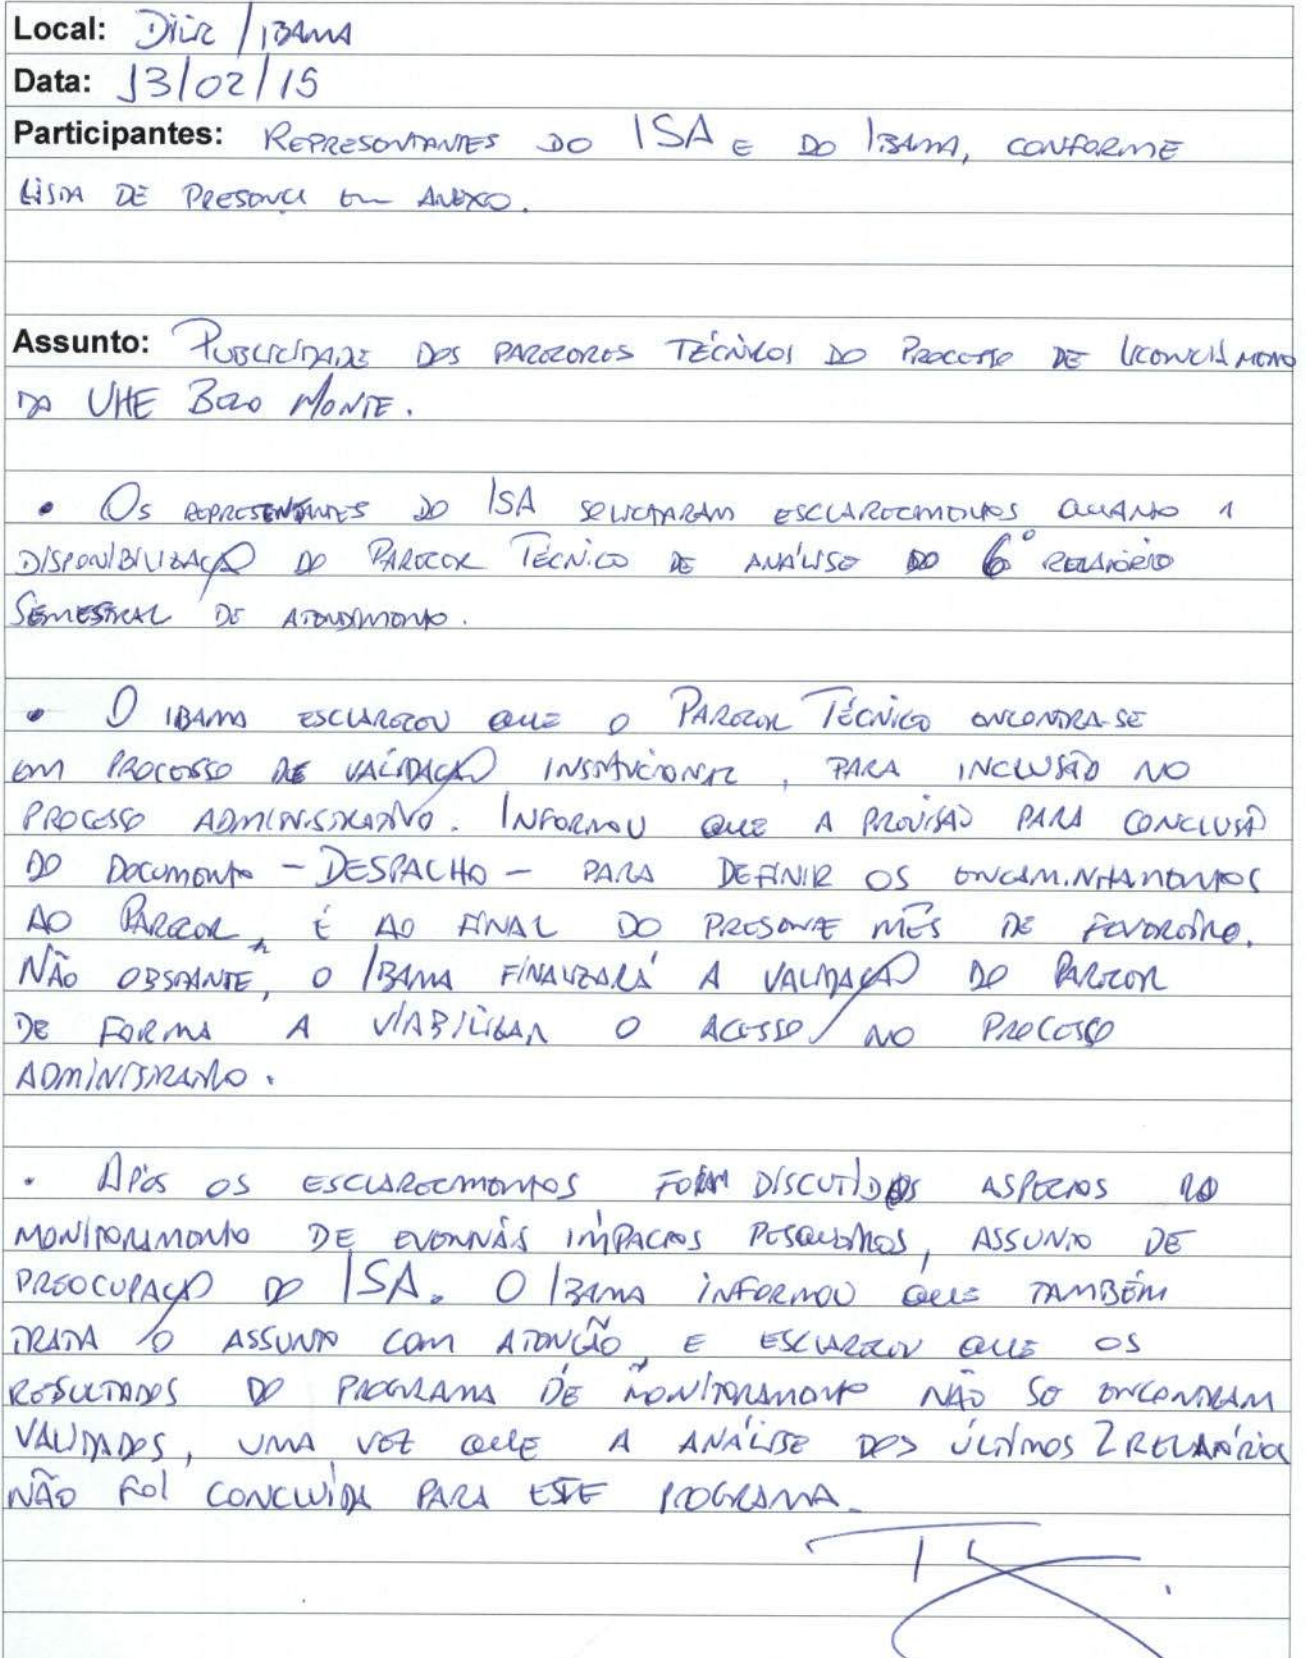 Local: Dilic / IBAMA
Data: 13/02/15
Participantes: REPRESENTANTES DO ISA E DO IBAMA, CONFORME
LISTA DE PRESENÇA EM ANEXO.
Assunto: PUBLICIDADE DOS PARECERES TÉCNICOS DO PROCESSO DE LICENCIAMENTO
DA UHE BELO MONTE.
• OS REPRESENTANTES DO ISA SOLICITARAM ESCLARECIMENTOS QUANTO À
DISPONIBILIZAÇÃO DO PARECER TÉCNICO DE ANÁLISE DO 6º RELATÓRIO
SEMESTRAL DE ATENDIMENTO.
• O IBAMA ESCLARECEU QUE O PARECER TÉCNICO ENCONTRA-SE
EM PROCESSO DE VALIDAÇÃO INSTITUCIONAL, PARA INCLUSÃO NO
PROCESSO ADMINISTRATIVO. INFORMOU QUE A PREVISÃO PARA CONCLUSÃO
DO DOCUMENTO – DESPACHO – PARA DEFINIR OS ENCAMINHAMENTOS
AO PARECER, É AO FINAL DO PRESENTE MÊS DE FEVEREIRO.
NÃO OBSTANTE, O IBAMA FINALIZARÁ A VALIDAÇÃO DO PARECER
DE FORMA A VIABILIZAR O ACESSO NO PROCESSO
ADMINISTRATIVO.
• APÓS OS ESCLARECIMENTOS FORAM DISCUTIDOS ASPECTOS DO
MONITORAMENTO DE EVENTUAIS IMPACTOS PESQUEIROS, ASSUNTO DE
PREOCUPAÇÃO DO ISA. O IBAMA INFORMOU QUE TAMBÉM
TRATA O ASSUNTO COM ATENÇÃO, E ESCLARECEU QUE OS
RESULTADOS DO PROGRAMA DE MONITORAMENTO NÃO SE ENCONTRAM
VALIDADOS, UMA VEZ QUE A ANÁLISE DOS ÚLTIMOS 2 RELATÓRIOS
NÃO FOI CONCLUÍDA PARA ESTE PROGRAMA.